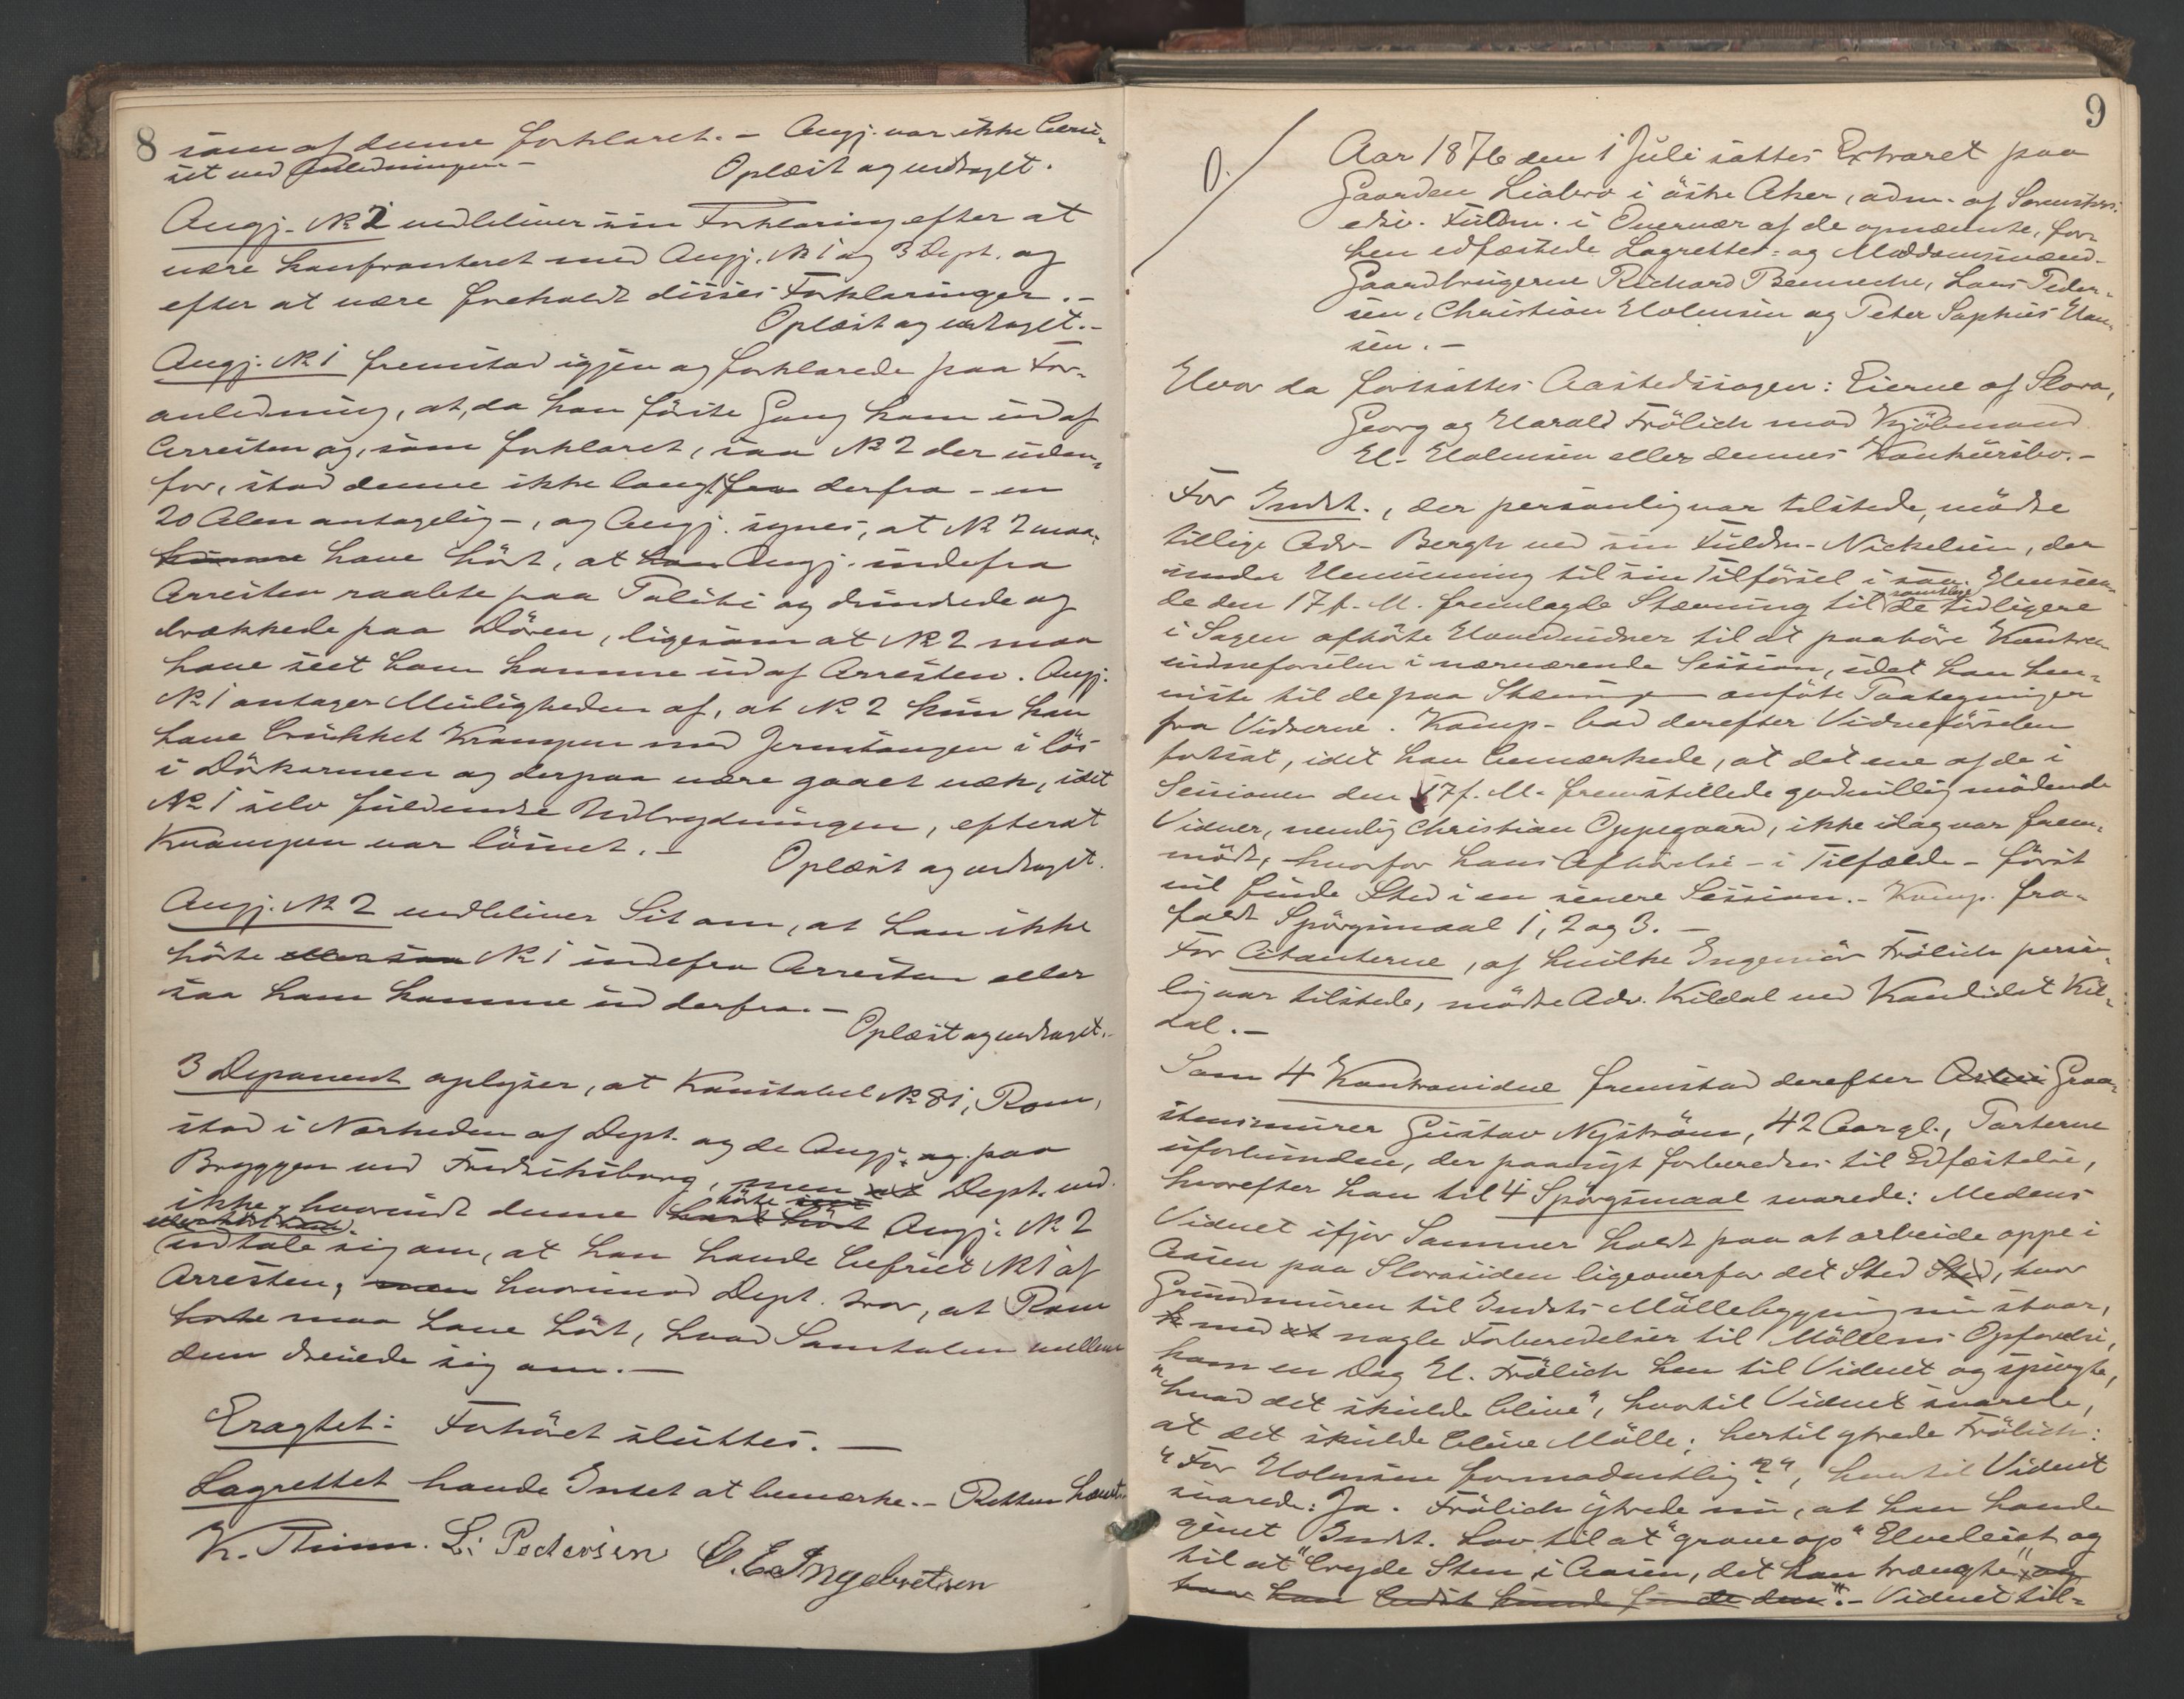 8
som af denne forklaret. – Angj. var ikke beru-
set ved Anledningen –
Oplæst og vedtaget.
Angj. No 2 vedbliver sin Forklaring efter at
være konfronteret med Angj. No 1 og 3 Dept. og
efter at være foreholdt disses Forklaringer. –
Oplæst og vedtaget. –
Angj. No 1 fremstod igjen og forklarede paa For-
anledning, at, da han förste Gang kom ud af
Arresten og, som forklaret, saa No 2 der uden-
for, stod denne ikke langt fra derfra – en
20 Alen antagelig –, og Angj. synes, at No 2 maa
kunne have hört, at han Angj. indefra
Arresten raabte paa Politi og dundrede og
brækkede paa Dören, ligesom at No 2 maa
have seet ham komme ud af Arresten. Angj.
No 1 antager Muligheden af, at No 2 kun kan
have brukket Krampen med Jernstangen i lös
i Dörkarmen og derpaa være gaaet væk, idet
No 1 selv fuldendte Udbrydningen, efterat
Krampen var lösnet. –
Oplæst og vedtaget.
Angj. No 2 vedbliver Sit om, at han ikke
hörte eller saa No 1 indefra Arresten eller
saa ham komme ud derfra. –
Oplæst og vedtaget. –
3 Deponent oplyser, at Konstabel No 81, Rom,
stod i Nærheden af Dept. og de Angj. og paa
Bryggen ved Fredriksborg, men Dept. ved
ikke, hvorvidt denne hörte Angj. No 2
eller hört ham
udtale sig om, at han havde befriet No 1 af
Arresten, men hvorimod Dept. tror, at Rom
hörte maa have hört, hvad Samtalen mellem
dem dreiede sig om. –
Eragtet: Forhöret sluttes. –
Lagrettet havde Intet at bemærke. – Retten hævet
K. Thinn. L. Pedersen O. E. Ingebretsen
9
0.
Aar 1876 den 1 Juli sattes Extraret paa
Gaarden Liabro i östre Aker, adm. af Sorenskr.
edsv. Fuldm. i Overvær af de opnævnte, for-
hen edfæstede Lagrettes- og Meddomsmænd
Gaardbrugerne Richard Benneche, Lars Peder-
sen, Christian Holmsen og Peter Sophus Han-
sen. –
Hvor da fortsattes Aastedssagen: Eierne af Slora,
Georg og Harald Frölich mod Kjöbmand
H. Holmsen eller dennes Konkursbo. –
For Indst., der personlig var tilstede, mödte
tillige Adv. Bergh ved sin Fuldm. Nickelsen, der
under Henvisning til sin Tilförsel i saa Henseen-
de den 17 f. M. fremlagde Stævning til samtlige de tidligere
i Sagen afhörte Hovedvidner til at paahöre Kontra-
vidneförselen i nærværende Session, idet han hen-
viste til de paa Stævningen anförte Paategninger
fra Vidnerne. Komp. bad derefter Vidneförselen
fortsat, idet han bemærkede, at det ene af de i
Sessionen den 17 f. M. fremstillede godvillig mödende
Vidner, nemlig Christian Oppegaard, ikke idag var frem-
mödt, hvorfor hans Afhörelse – i Tilfælde – först
vil finde Sted i en senere Session. – Komp. fra-
faldt Spörgsmaal 1, 2 og 3. –
For Citanterne, af hvilke Ingeniör Frölich person-
lig var tilstede, mödte Adv. Kildal ved Kandidat Kil-
dal. –
Som 4 Kontravidne fremstod derefter Graa-
stensmurer Gustav Nyström, 42 Aar gl., Parterne
uforbunden, der paanyt forberedtes til Edfæstelse,
hvorefter han til 4 Spörgsmaal svarede: Medens
Vidnet ifjor Sommer holdt paa at arbeide oppe i
Aasen paa Slorasiden ligeoverfor det Sted Sted, hvor
Grundmuren til Indsts Möllebygning nu staar,
med at nogle Forberedelser til Möllens Opförelse,
kom en Dag H. Frölich hen til Vidnet og spurgte,
"hvad det skulde blive", hvortil Vidnet svarede,
at det skulde blive Mölle; hertil ytrede Frölich:
"For Holmsen formodentlig?", hvortil Vidnet
svarede: Ja. Frölich ytrede nu, at han havde
givet Indst. Lov til at "grave op" Elveleiet og
til at "bryde Sten i Aasen, det han trængte" og
hvor han bedst kunde finde den". – Vidnet til-